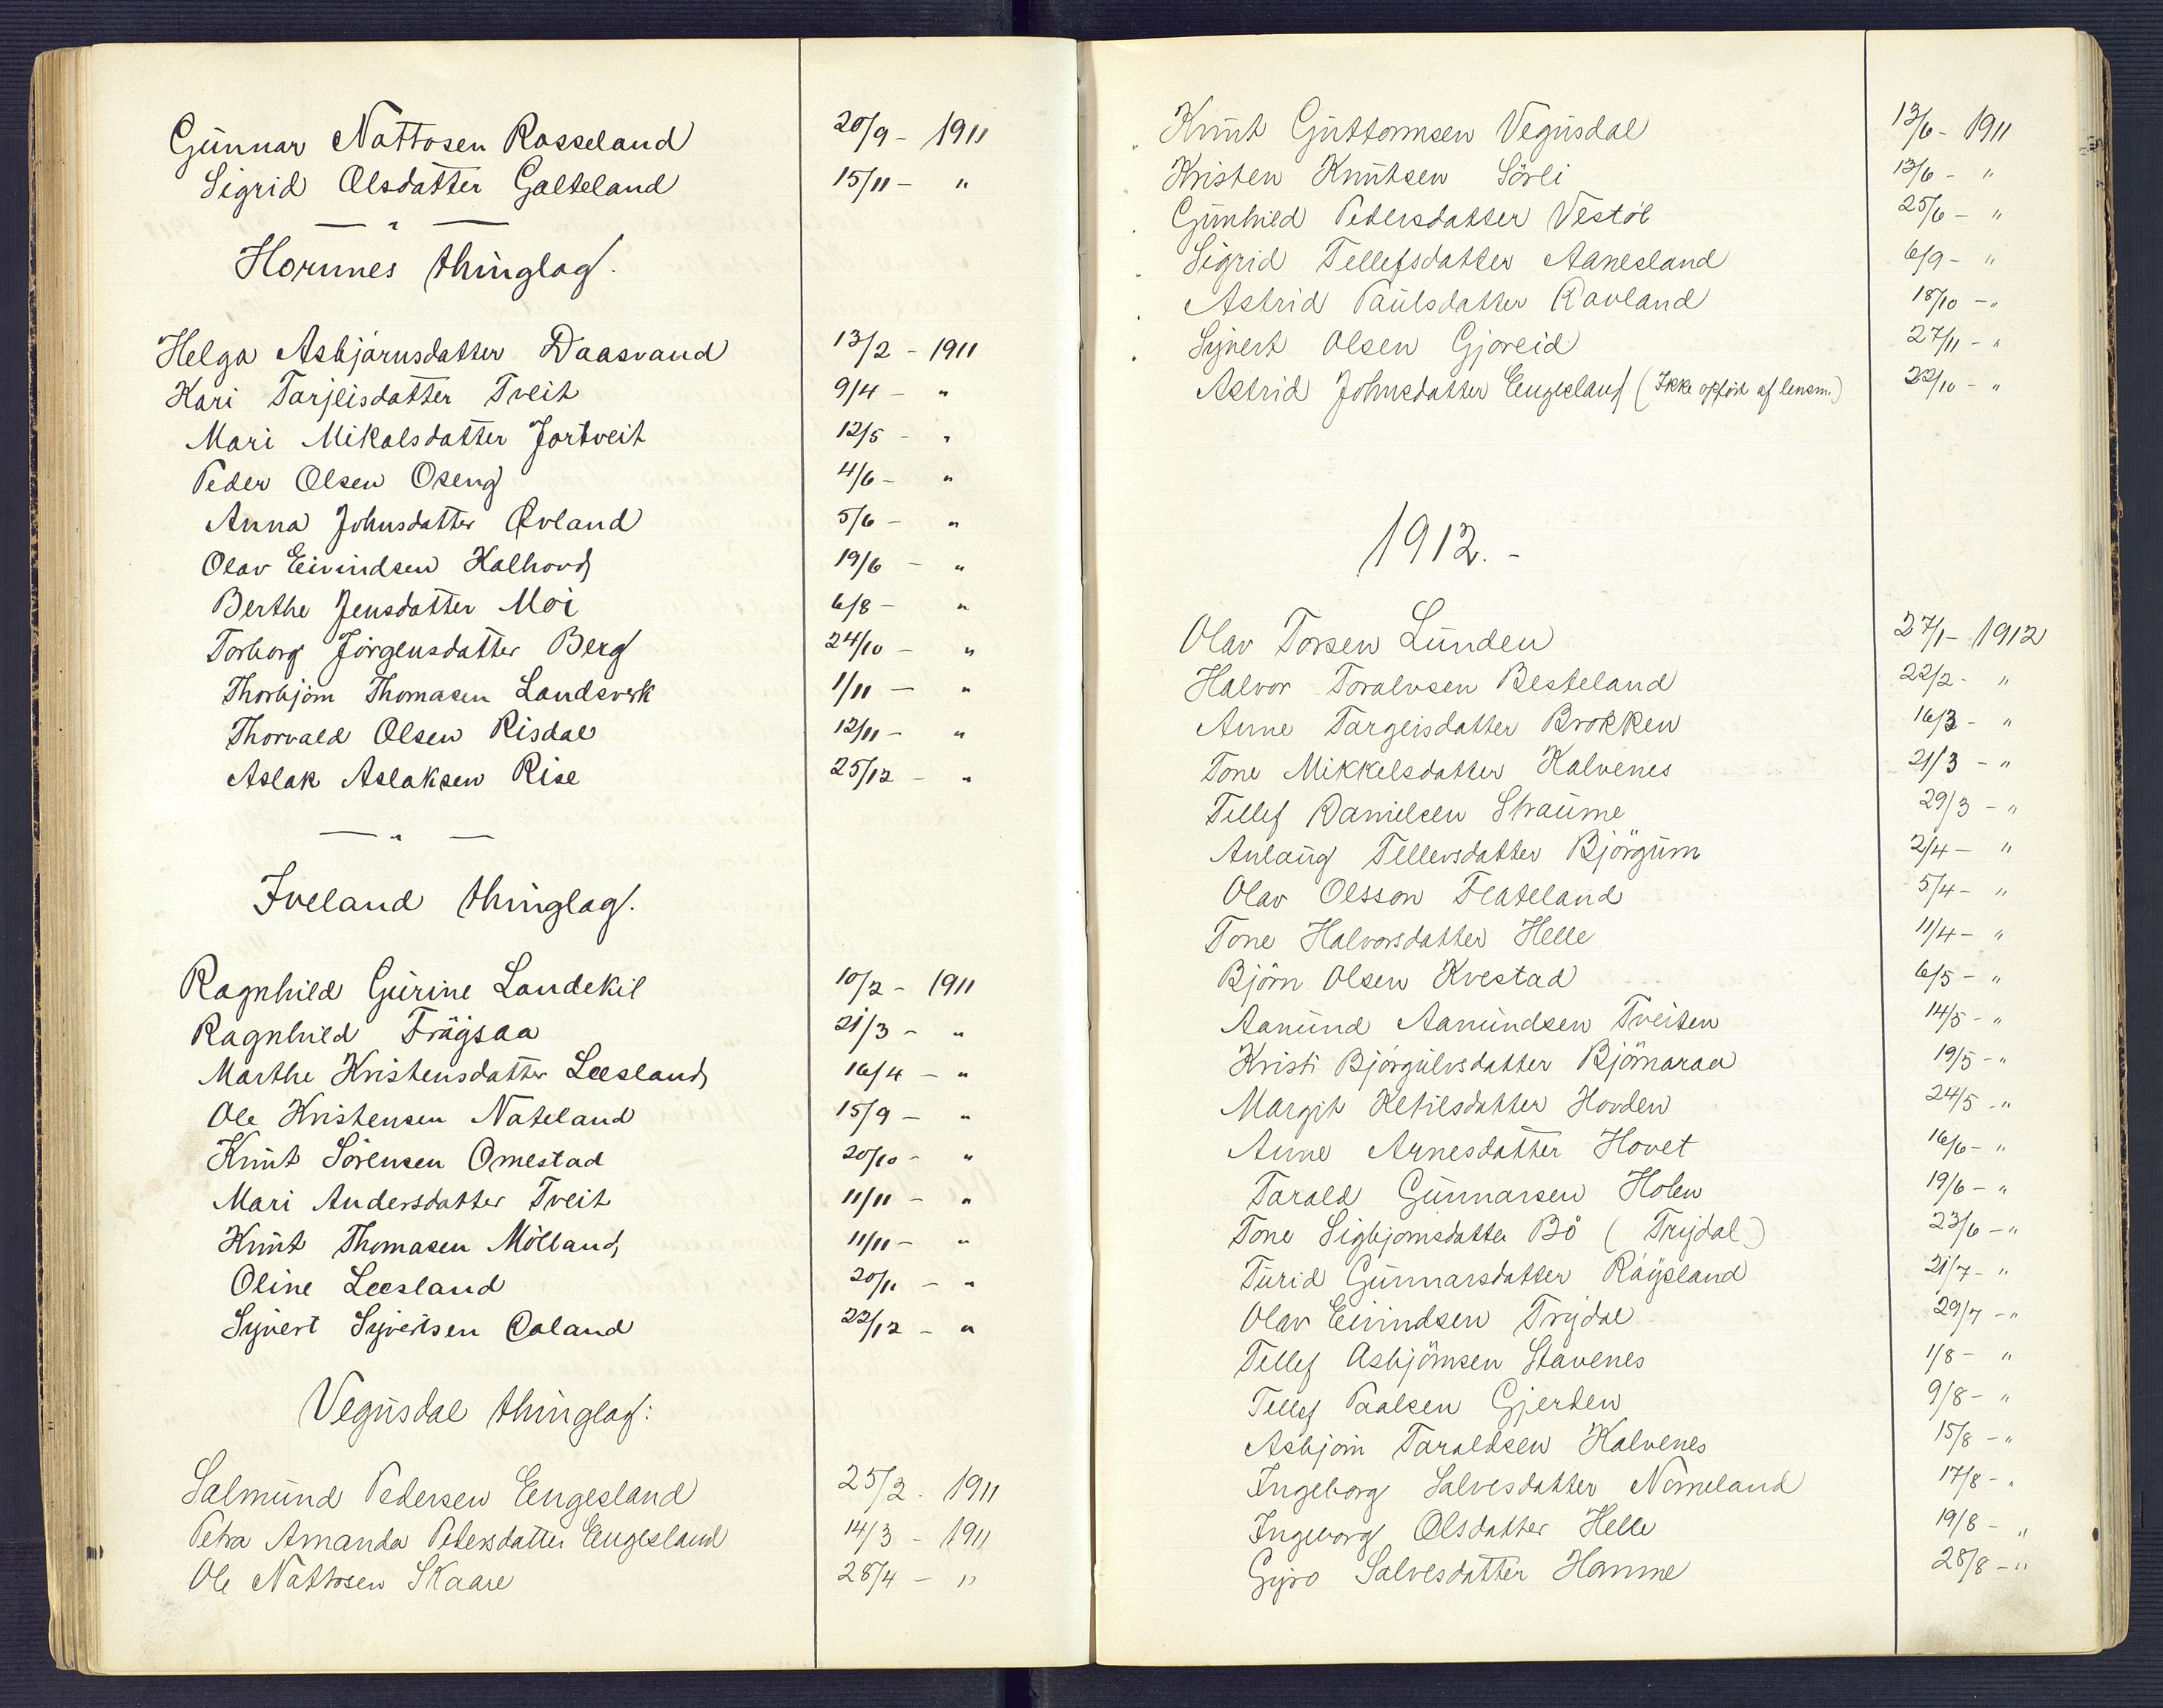 Gunnar Nattosen Rosseland 20/9 - 1911
Sigrid Olsdatter Galteland 15/11 - "
— " —
Hornnes thinglag.
Helga Asbjørnsdatter Daasvand 13/2 - 1911
Kari Tarjeisdatter Tveit 9/4 - "
Mari Mikalsdatter Jortveit 12/5 - "
Peder Olsen Oseng 4/6 - "
Anna Johnsdatter Øvland 5/6 - "
Olav Eivindsen Kalhovd 19/6 - "
Berthe Jensdatter Moi 6/8 - "
Torborg Jörgensdatter Berg 24/10 - "
Thorbjørn Thomasen Landsverk 1/11 - "
Thorvald Olsen Risdal 12/11 - "
Aslak Aslaksen Rise 25/12 - "
— " —
Iveland thinglag.
Ragnhild Gurine Landekil 10/2 - 1911
Ragnhild Frøysaa 21/3 - "
Marthe Kristensdatter Leesland 16/4 - "
Ole Kristensen Nateland 15/9 - "
Knut Sørensen Omestad 20/10 - "
Mari Andersdatter Tveit 11/11 - "
Knut Thomasen Mölland 11/11 - "
Oline Leesland 20/11 - "
Syvert Syvertsen Caland 22/12 - "
Vegusdal thinglag:
Salmund Pedersen Engesland 25/2. 1911
Petra Amanda Petersdatter Engesland 14/3 - 1911
Ole Nattosen Skaare 28/4 - "
Knut Guttormsen Vegusdal 13/6 - 1911
Kristen Knutsen Sörli 13/6 - "
Gunhild Pedersdatter Vestöl 25/6 - "
Sigrid Tellefsdatter Aanesland 6/9 - "
Astrid Paulsdatter Ravland 18/10 - "
Syvert Olsen Gjoreid 27/11 - "
Astrid Johnsdatter Engesland (Ikke opført af lensm.) 22/10 - "
1912. -
Olav Torsen Lunden 27/1 - 1912
Halvor Toralvsen Besteland 22/2 - "
Anne Targeisdatter Brokken 16/3 - "
Tone Mikkelsdatter Kalvenes 21/3 - "
Tellef Danielsen Straume 29/3 - "
Anlaug Tellevsdatter Björgum 2/4 - "
Olav Olsson Flateland 5/4 - "
Tone Halvorsdatter Helle 11/4 - "
Björn Olsen Kvestad 6/5 - "
Aanund Aanundsen Tveiten 14/5 - "
Kristi Björgulvsdatter Björnaraa 19/5 - "
Margit Ketilsdatter Hovden 24/5 - "
Anne Arnesdatter Hovet 16/6 - "
Tarald Gunnarsen Holen 19/6 - "
Tone Sigbjørnsdatter Bö (Trydal) 23/6 - "
Turid Gunnarsdatter Røysland 21/7 - "
Olav Eivindsen Trydal 29/7 - "
Tellef Asbjörnsen Stavenes 1/8 - "
Tellef Paalsen Gjerden 9/8 - "
Asbjørn Taraldsen Kalvenes 15/8 - "
Ingeborg Salvesdatter Nomeland 17/8 - "
Ingeborg Olsdatter Helle 19/8 - "
Gyro Salvesdatter Homme 28/8 - "